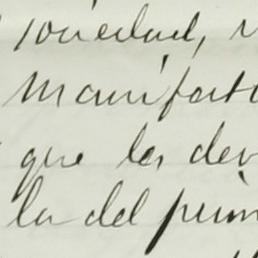 sociedad,
manifest
que los dev
la del prim